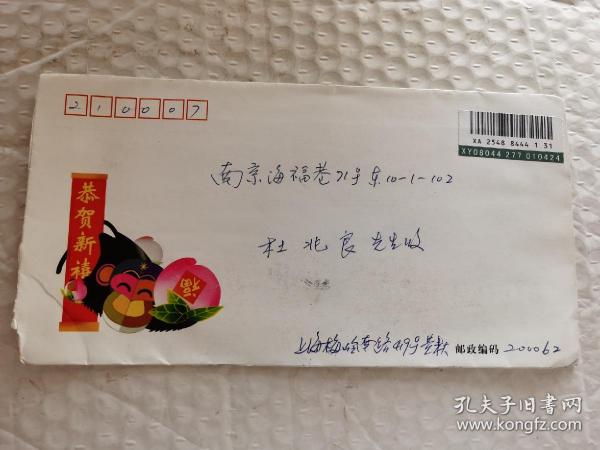 210007
XA 2548 8444 1 31
XY08044 277 010424
南京海福巷71号东10-1-102
恭贺新禧
杜兆良先生收
福
上海梅岭南路 号 邮政编码 200062
孔夫子旧书网
www.kongfz.com